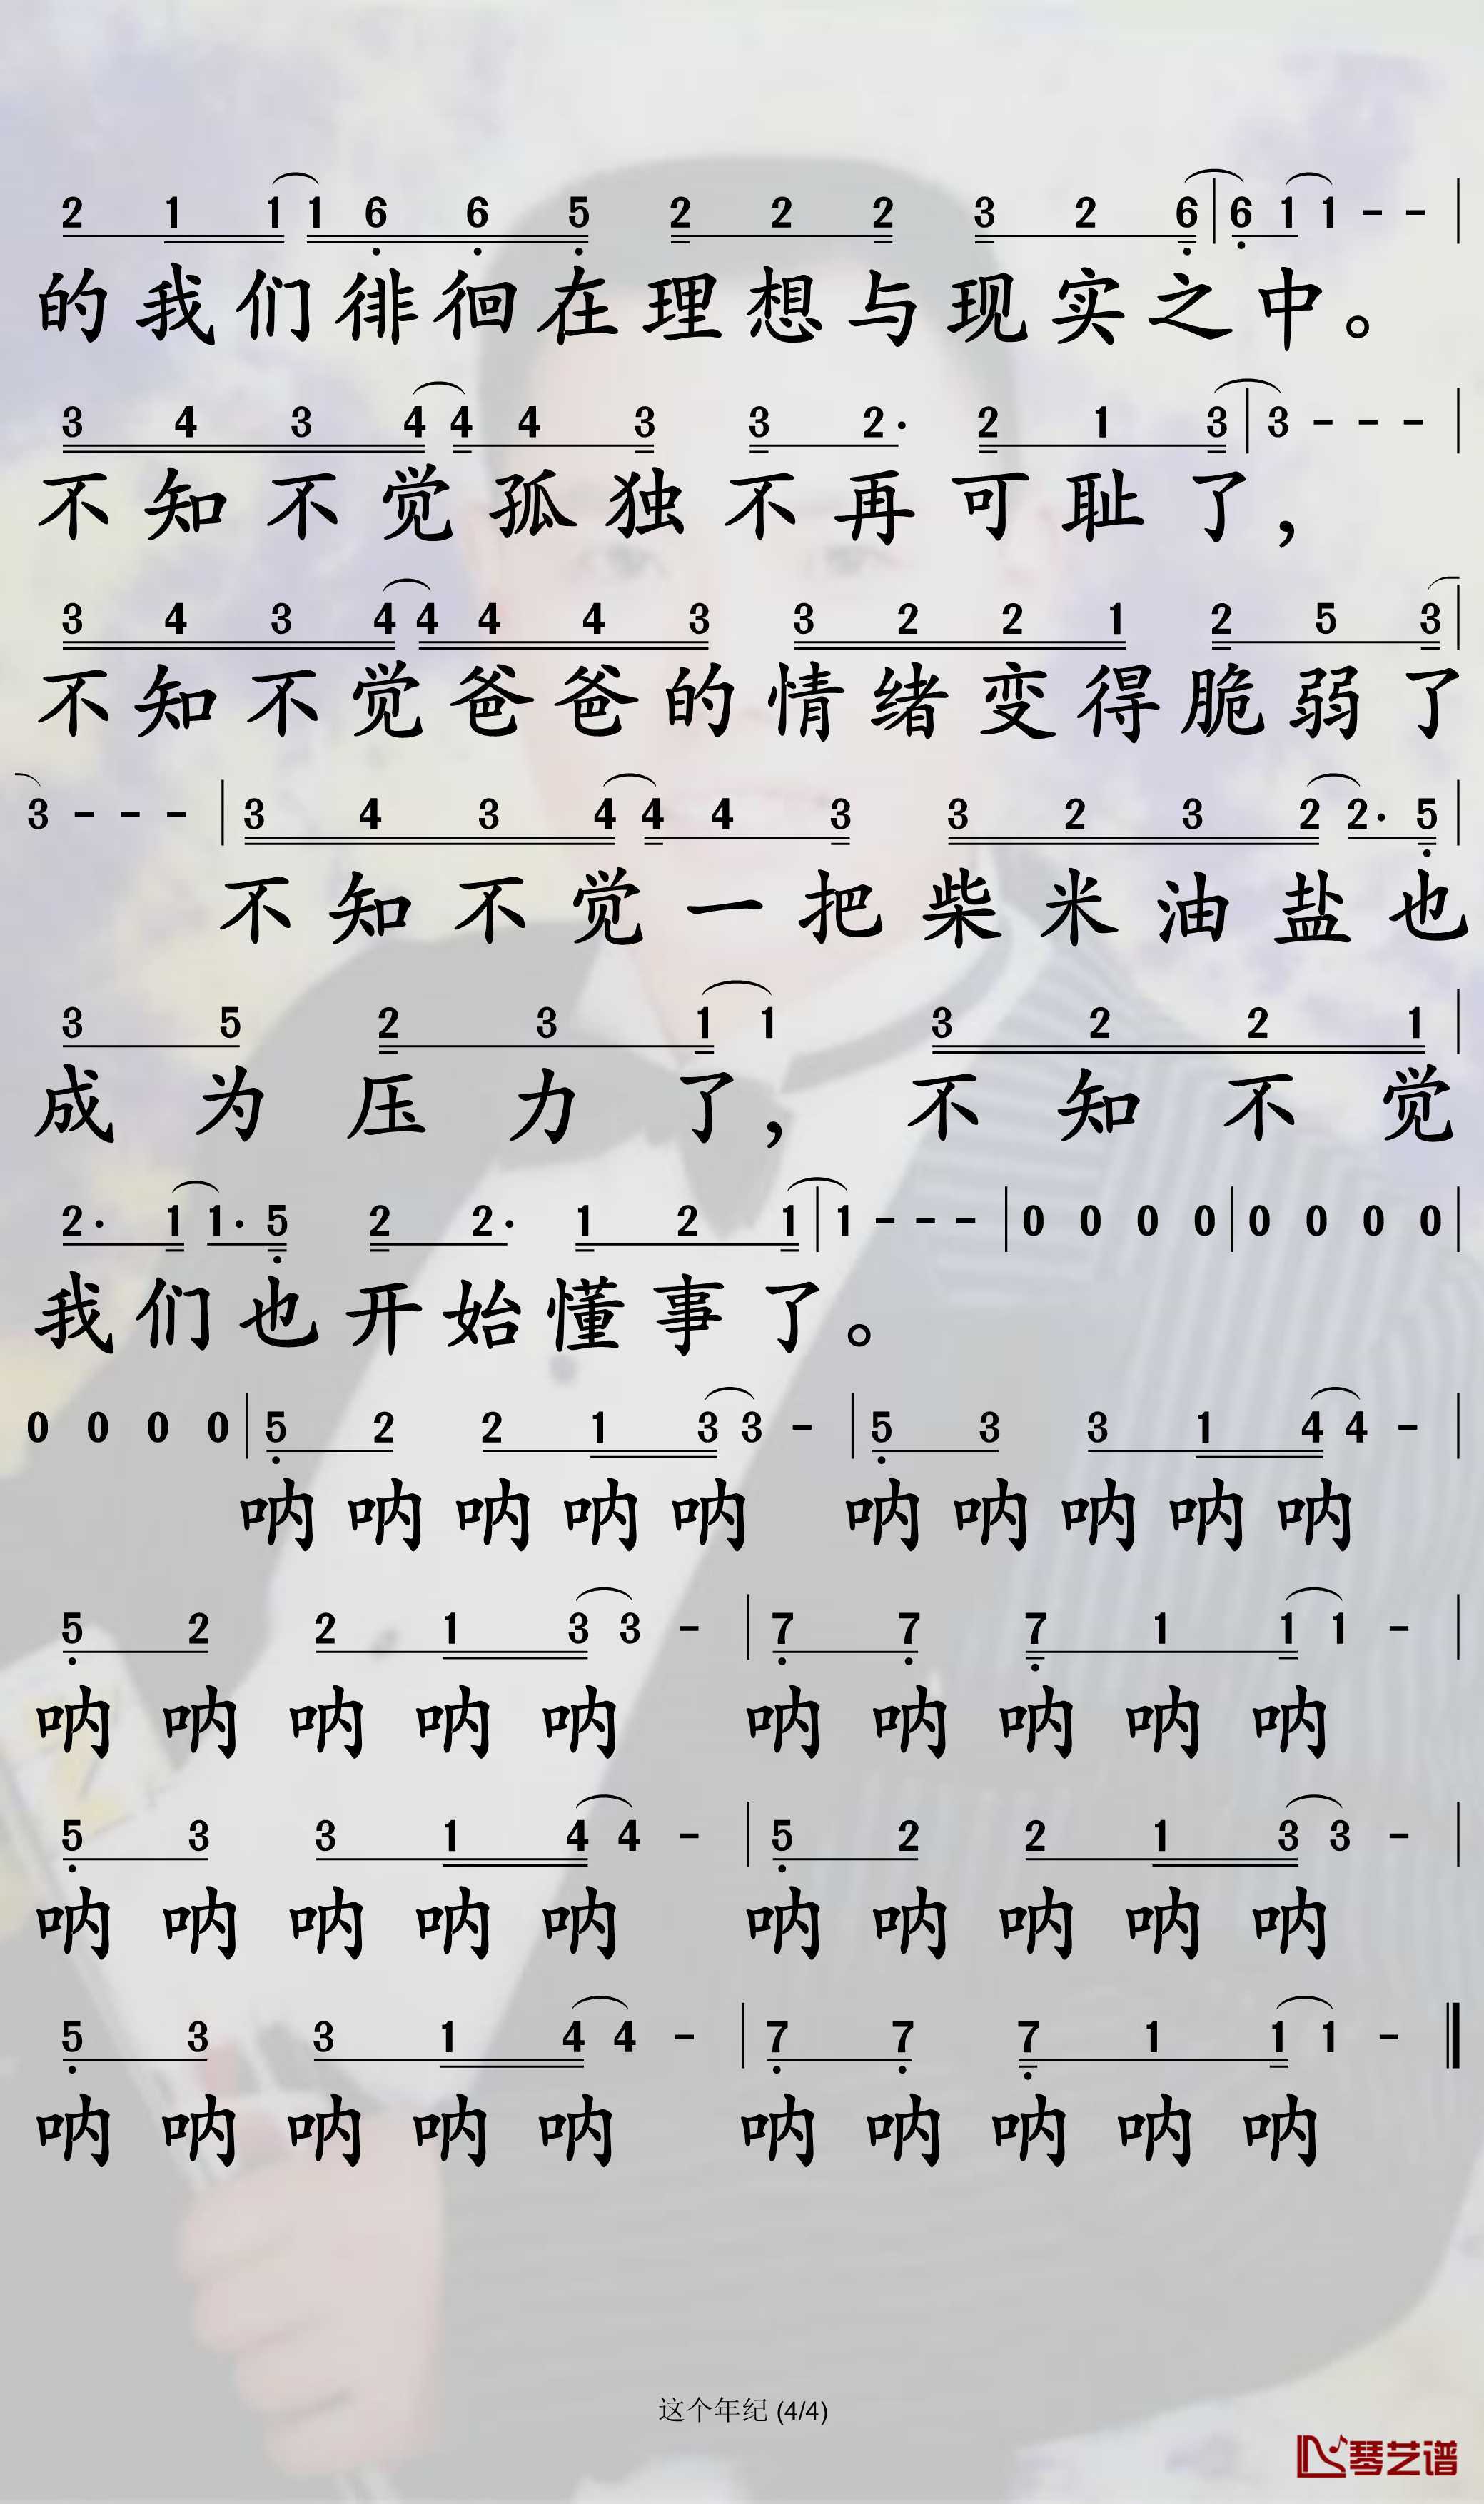 2 1 1 1 6 6 5 2 2 2 3 2 6 | 6 1 1 - - |
的我们徘徊在理想与现实之中。
3 4 3 4 4 4 3 3 2. 2 1 3 | 3 - - - |
不知不觉孤独不再可耻了，
3 4 3 4 4 4 4 3 3 2 2 1 2 5 3 |
不知不觉爸爸的情绪变得脆弱了
3 - - - | 3 4 3 4 4 4 3 3 2 3 2 2. 5 |
不知不觉一把柴米油盐也
3 5 2 3 1 1 3 2 2 1 |
成为压力了，不知不觉
2. 1 1. 5 2 2. 1 2 1 | 1 - - - | 0 0 0 0 | 0 0 0 0 |
我们也开始懂事了。
0 0 0 0 | 5 2 2 1 3 3 - | 5 3 3 1 4 4 - |
呐呐呐呐呐 呐呐呐呐呐
5 2 2 1 3 3 - | 7 7 7 1 1 1 - |
呐呐呐呐呐 呐呐呐呐呐
5 3 3 1 4 4 - | 5 2 2 1 3 3 - |
呐呐呐呐呐 呐呐呐呐呐
5 3 3 1 4 4 - | 7 7 7 1 1 1 - ‖
呐呐呐呐呐 呐呐呐呐呐
这个年纪 (4/4)
琴艺谱